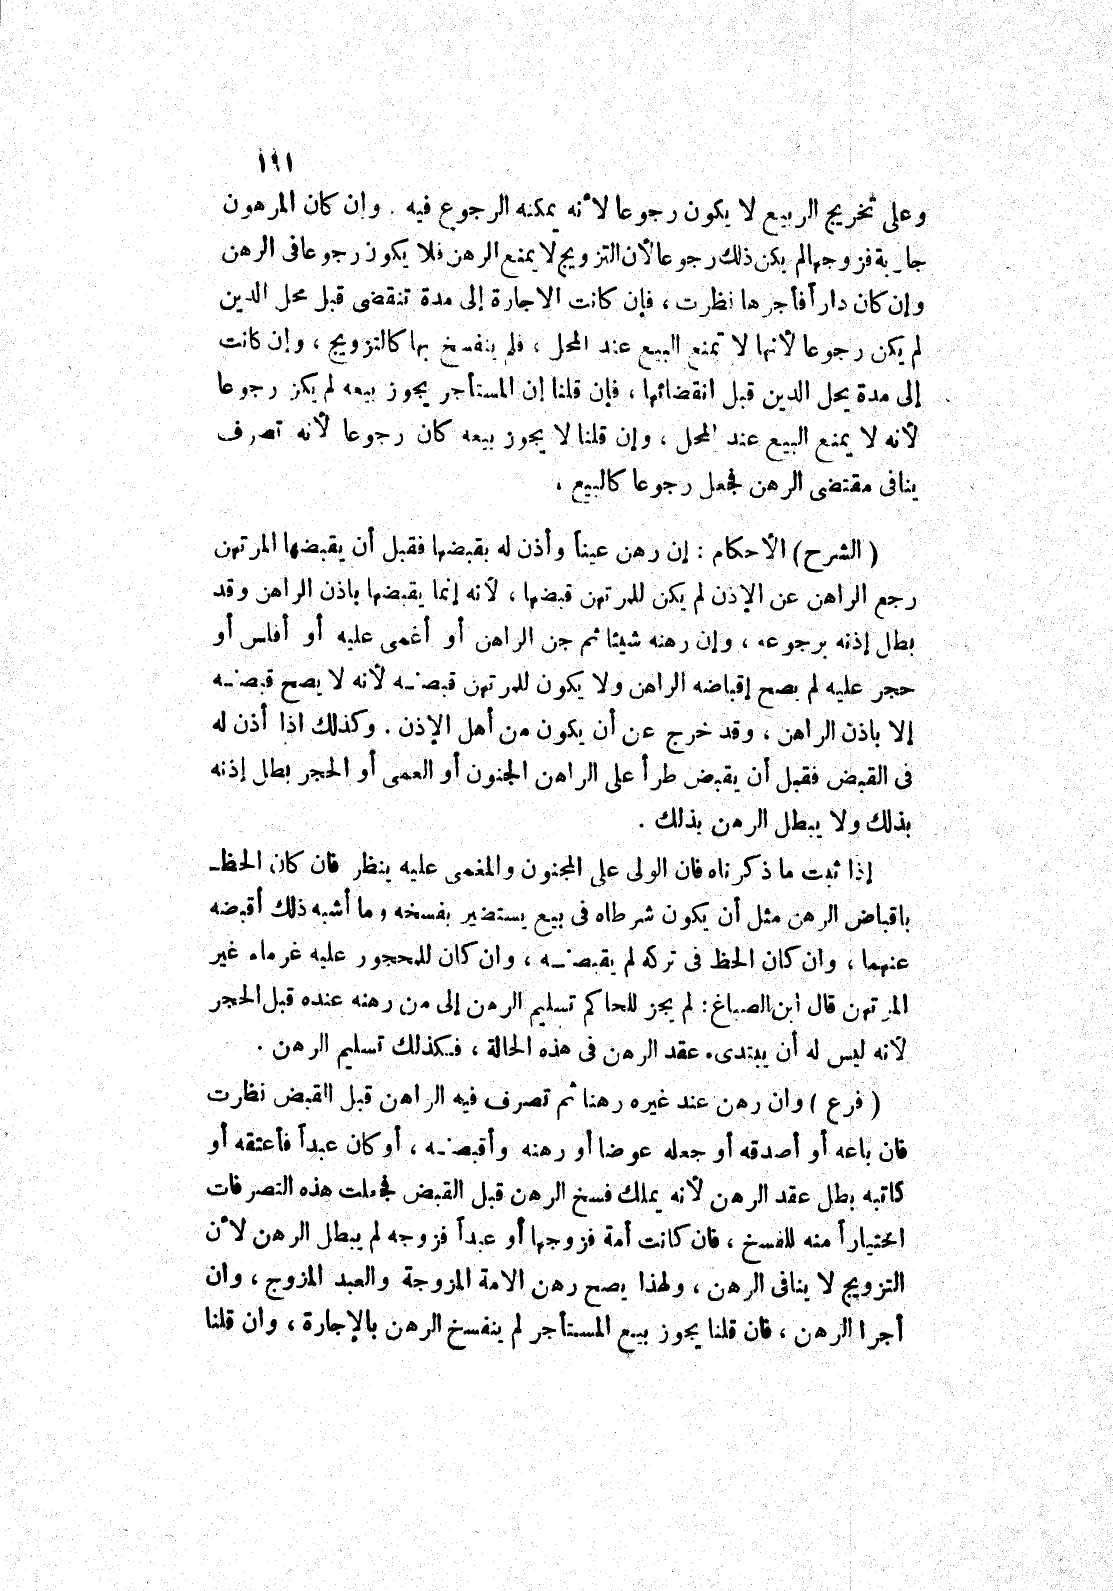 ١٩١
وعلى تخريج الربيع لا يكون رجوعا لأنه يمكنه الرجوع فيه . وان كان المرهون
جارية فزوجها لم يكن ذلك رجوعا لأن التزويج لا يمنع الرهن فلا يكون رجوعا فى الرهن
وإن كان داراً فأجرها نظرت ، فإن كانت الاجارة إلى مدة تنقضى قبل محل الدين
لم يكن رجوعا لأنها لا تمنع البيع عند المحل ، فلم ينفسخ بها كالتزويج ، وإن كانت
إلى مدة يحل الدين قبل انقضائها ، فإن قلنا إن المستأجر يجوز بيعه لم يكن رجوعا
لأنه لا يمنع البيع عند المحل ، وإن قلنا لا يجوز بيعه كان رجوعا لأنه تصرف
ينافى مقتضى الرهن فجعل رجوعا كالبيع .
( الشرح ) الأحكام : إن رهن عيناً وأذن له بقبضها فقبل أن يقبضها المرتهن
رجع الراهن عن الإذن لم يكن للمرتهن قبضها ، لأنه إنما يقبضها باذن الراهن وقد
بطل إذنه برجوعه ، وإن رهنه شيئا ثم جن الراهن أو أغمى عليه أو أفلس أو
حجر عليه لم يصح إقباضه الراهن ولا يكون للمرتهن قبضه لأنه لا يصح قبضه
إلا باذن الراهن ، وقد خرج عن أن يكون من أهل الإذن . وكذلك اذا أذن له
فى القبض فقبل أن يقبض طرأ على الراهن الجنون أو العمى أو الحجر بطل إذنه
بذلك ولا يبطل الرهن بذلك .
إذا ثبت ما ذكرناه فان الولى على المجنون والمغمى عليه ينظر فان كان الحظ
باقباض الرهن مثل أن يكون شرطاه فى بيع يستضير بفسخه وما أشبه ذلك أقبضه
عنهما ، وان كان الحظ فى تركه لم يقبضه ، وان كان للمحجور عليه غرماء غير
المرتهن قال ابن الصباغ : لم يجز للحاكم تسليم الرهن إلى من رهنه عنده قبل الحجر
لأنه ليس له أن يبتدىء عقد الرهن فى هذه الحالة ، فكذلك تسليم الرهن .
( فرع ) وان رهن عند غيره رهنا ثم تصرف فيه الراهن قبل القبض نظرت
فان باعه أو أصدقه أو جعله عوضا أو رهنه وأقبضه ، أو كان عبداً فأعتقه أو
كاتبه بطل عقد الرهن لأنه يملك فسخ الرهن قبل القبض فجعلت هذه التصرفات
اختياراً منه للفسخ ، فان كانت أمة فزوجها أو عبداً فزوجه لم يبطل الرهن لأن
التزويج لا ينافى الرهن ، ولهذا يصح رهن الامة المزوجة والعبد المزوج ، وان
أجرا الرهن ، فان قلنا يجوز بيع المستأجر لم ينفسخ الرهن بالإجارة ، وان قلنا